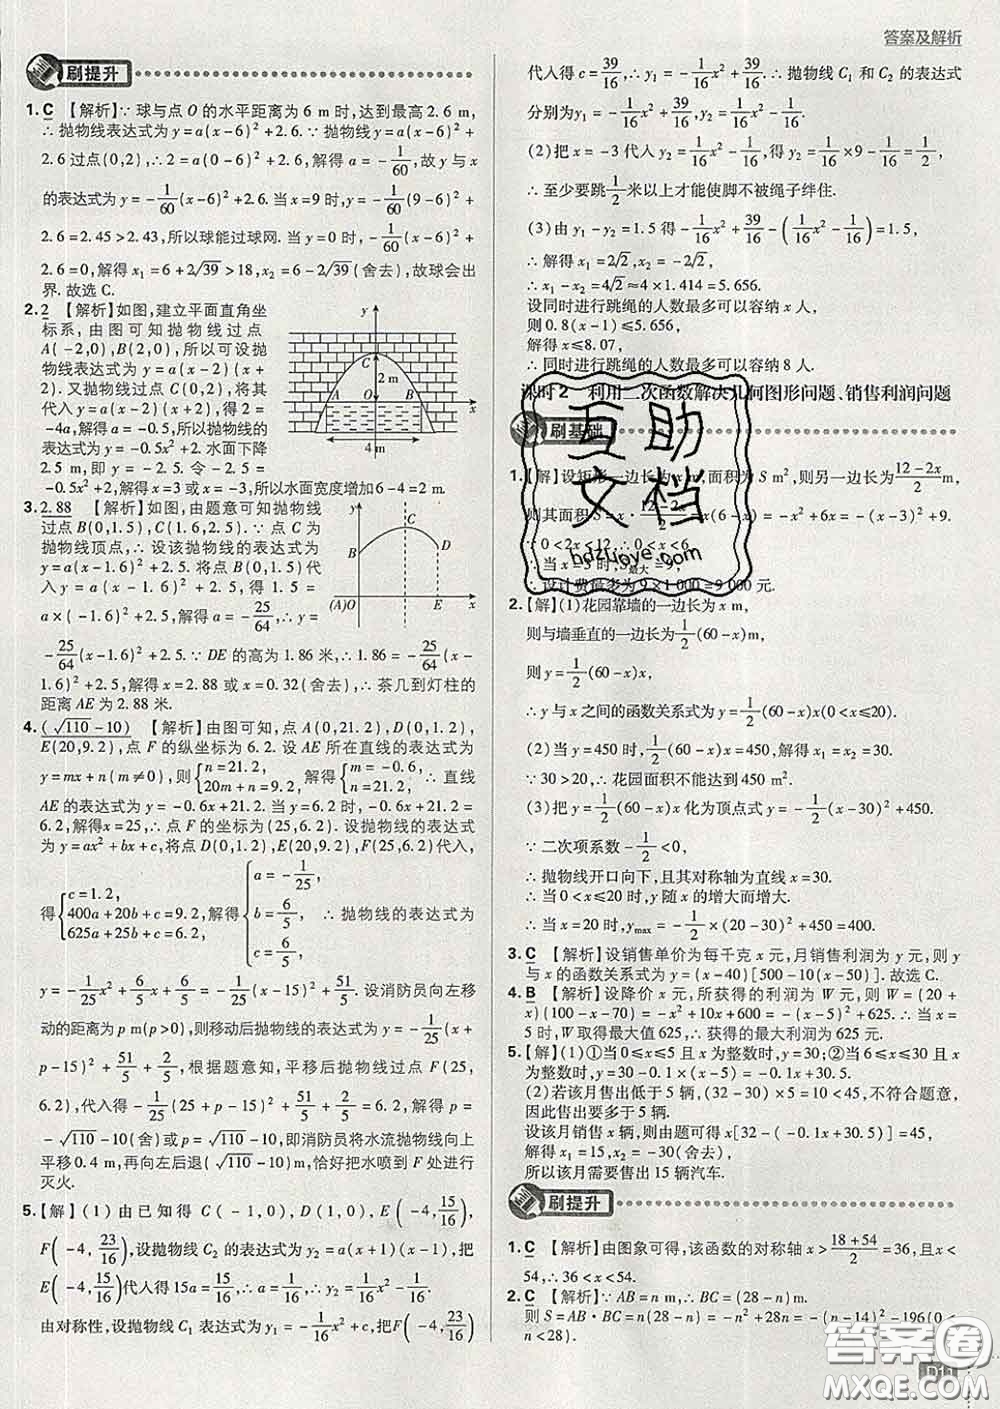 答案及解析
刷提升
1. C 【解析】∵ 球与点 O 的水平距离为 6 m 时,达到最高 2.6 m,
∴ 抛物线表达式为 y=a(x-6)²+2.6. ∵ 抛物线 y=a(x-6)²+
2.6 过点(0,2),∴ 2=a(0-6)²+2.6,解得 a=-1/60,故 y 与 x
的表达式为 y=-1/60(x-6)²+2.6. 当 x=9 时,y=-1/60(9-6)²+
2.6=2.45>2.43,所以球能过球网. 当 y=0 时,-1/60(x-6)²+
2.6=0,解得 x₁=6+2√39>18,x₂=6-2√39(舍去),故球会出
界. 故选 C.
2. 2 【解析】如图,建立平面直角坐
标系,由图可知抛物线过点
A(-2,0),B(2,0),所以可设抛
物线表达式为 y=a(x-2)(x+
2). 又抛物线过点 C(0,2),将其
代入 y=a(x-2)(x+2),得 2=
-4a,解得 a=-0.5,所以抛物线
表达式为 y=-0.5x²+2. 水面下降
2.5 m,即当 y=-2.5 时,令 -2.5=
-0.5x²+2,解得 x=3 或 x=-3,所以水面宽度增加 6-4=2 m.
y
C
2 m
A
O
B
x
4 m
3. 2.88 【解析】如图,由题意可知抛物线
过点 B(0,1.5),C(1.6,2.5). ∵ 点 C 为
抛物线顶点,∴ 设该抛物线表达式为
y=a(x-1.6)²+2.5,代入点 B 得 1.5=
a×(-1.6)²+2.5,解得 a=-25/64,∴ y=
-25/64(x-1.6)²+2.5. ∵ DE 的高为 1.86 米,∴ 1.86=-25/64(x-
1.6)²+2.5,解得 x=2.88 或 x=0.32(舍去),∴ 茶几到灯柱的
距离 AE 为 2.88 米.
y
C
B
D
(A)O
E
x
4. (√110-10) 【解析】由图可知,点 A(0,21.2),D(0,1.2),
E(20,9.2),点 F 的纵坐标为 6.2. 设 AE 所在直线的表达式为
y=mx+n(m≠0),则{n=21.2, 20m+n=9.2, 解得{m=-0.6, n=21.2, ∴ 直线
AE 的表达式为 y=-0.6x+21.2. 当 y=6.2 时,-0.6x+21.2=
6.2,解得x=25,∴ 点 F 的坐标为(25,6.2). 设抛物线的表达式
为 y=ax²+bx+c,将点 D(0,1.2),E(20,9.2),F(25,6.2)代入,
得{c=1.2, 400a+20b+c=9.2, 625a+25b+c=6.2, 解得{a=-1/25, b=6/5, c=6/5, ∴ 抛物线的表达式为
y=-1/25x²+6/5x+6/5=-1/25(x-15)²+51/5. 设消防员向左移
动的距离为 p m(p>0),则移动后抛物线的表达式为 y=-1/25(x+
p-15)²+51/5,根据题意知,平移后抛物线过点 F(25,
6.2),代入得 -1/25(25+p-15)²+51/5=6.2,解得 p=
-√110-10(舍)或 p=√110-10,即消防员将水流抛物线向上
平移 0.4 m,再向左后退(√110-10)m,恰好把水喷到 F 处进行
灭火.
5. 【解】(1)由已知得 C(-1,0),D(1,0),E(-4,15/16),
F(-4,23/16),设抛物线 C₂ 的表达式为 y₂=a(x+1)(x-1),把
E(-4,15/16)代入得 15a=15/16,∴ a=1/16,∴ y₂=1/16x²-1/16.
由对称性,设抛物线 C₁ 表达式为 y₁=-1/16x²+c,把F(-4,23/16)
代入得 c=39/16,∴ y₁=-1/16x²+39/16,∴ 抛物线 C₁ 和 C₂ 的表达式
分别为y₁=-1/16x²+39/16,y₂=1/16x²-1/16.
(2)把 x=-3 代入 y₂=1/16x²-1/16,得 y₂=1/16×9-1/16=1/2,
∴ 至少要跳1/2米以上才能使脚不被绳子绊住.
(3)由 y₁-y₂=1.5 得 -1/16x²+39/16-(1/16x²-1/16)=1.5,
解得 x₁=2√2,x₂=-2√2,
∴ x₁-x₂=4√2≈4×1.414=5.656.
设同时进行跳绳的人数最多可以容纳 x 人,
则 0.8(x-1)≤5.656,
解得 x≤8.07,
∴ 同时进行跳绳的人数最多可以容纳 8 人.
课时2 利用二次函数解决几何图形问题、销售利润问题
刷基础
1. 【解】设矩形一边长为 x m,面积为 S m²,则另一边长为(12-2x)/2 m,
则其面积 S=x·(12-2x)/2=x(6-x)=-x²+6x=-(x-3)²+9.
∵ 0<2x<12,∴ 0<x<6.
∴ 当 x=3 时,S最大=9.
∴ 设计费最多为 9×1 000=9 000 元.
2. 【解】(1)花园靠墙的一边长为 x m,
则与墙垂直的一边长为1/2(60-x)m,
则 y=1/2(60-x)x,
∴ y 与 x 之间的函数关系式为 y=1/2(60-x)x(0<x≤20).
(2)当 y=450 时,1/2(60-x)x=450,解得 x=30.
∵ 30>20,∴ 花园面积不能达到 450 m².
(3)把 y=1/2(60-x)x 化为顶点式 y=-1/2(x-30)²+450.
∵ 二次项系数 -1/2<0,
∴ 抛物线开口向下,且其对称轴为直线 x=30.
∴ 当 0<x≤20 时,y 随 x 的增大而增大.
∴ 当 x=20 时,yₘₐₓ=-1/2×(20-30)²+450=400.
3. C 【解析】设销售单价为每千克 x 元,月销售利润为 y 元,则 y
与 x 的函数关系式为 y=(x-40)[500-10(x-50)]. 故选 C.
4. B 【解析】设降价 x 元,所获得的利润为 W 元,则 W=(20+
x)(100-x-70)=-x²+10x+600=-(x-5)²+625. ∴ 当 x=
5 时,W 取得最大值 625,∴ 获得的最大利润为 625 元.
5. 【解】(1)①当 0≤x≤5 且 x 为整数时,y=30;②当 6≤x≤30 且
x 为整数时,y=30-0.1×(x-5)=-0.1x+30.5.
(2)若该月售出低于 5 辆,(32-30)×5=10<45,不符合题意,
因此售出要多于 5 辆.
设该月销售 x 辆,则由题可得 x[32-(-0.1x+30.5)]=45,
解得 x₁=15,x₂=-30(舍去),
所以该月需要售出 15 辆汽车.
刷提升
1. C 【解析】由图象可得,该函数的对称轴 x>(18+54)/2=36,且 x<
54,∴ 36<x<54.
2. C 【解析】∵ AB=n m,∴ BC=(28-n)m.
则 S=AB·BC=n(28-n)=-n²+28n=-(n-14)²+196(0<
n<28).
D11
互助
文档
hdzuoye.com
答案圈
MXQE.COM